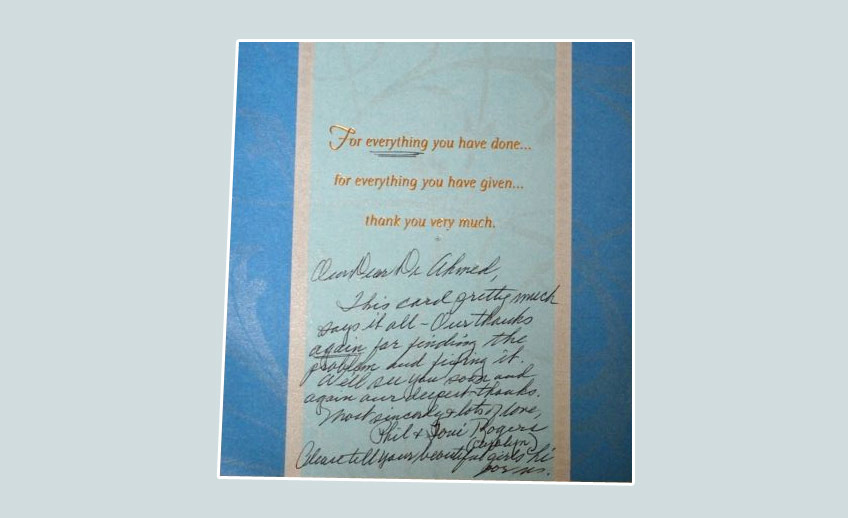 For everything you have done...
for everything you have given...
thank you very much.
Our Dear Dr Ahmed,
This card pretty much
says it all - Our thanks
again for finding the
problem and fixing it.
We'll see you soon and
again our deepest thanks.
Most sincerely & lots of love,
Phil & Rogers
Please tell your beautiful girls hi
for us.